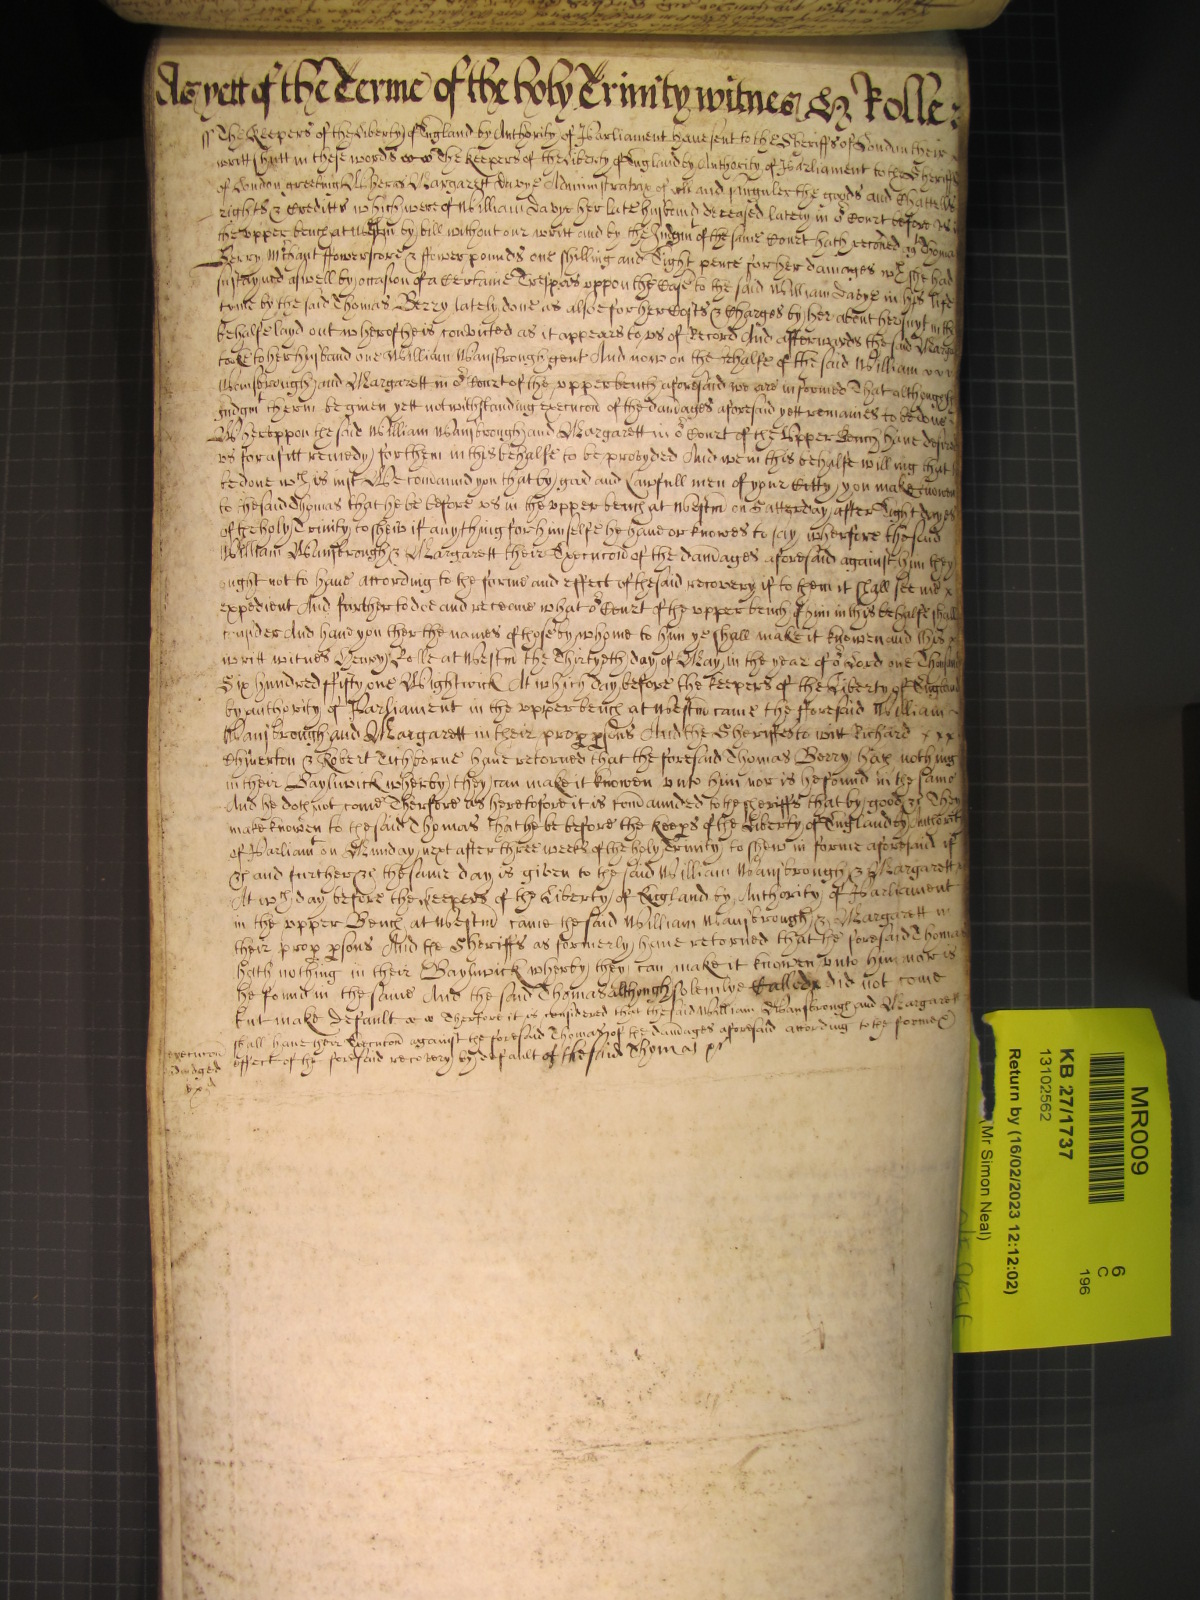 As yett of the Terme of the holy Trinity witnes H Rolle
ss The Keepers of the Liberty of England by Authority of Parliament have sent to the Sheriffs of London their
writt shutt in these words The Keepers of the Liberty of England by Authority of Parliament to the Sheriffs
of London greeting Wheras Margarett Administratrix of all and singuler the goods and Chattells
rights & Creditts which were of William her late husband deceased lately in or Court before us
the upper bench at Westm by bill without our writt and by the Judgmt of the same Court hath recoued agt Thomas
Berry Mrchant flowerscore & flower pounds one shilling and Eight pence for her damages wch she had
sustayned aswell by occasion of a Certaine Trespas uppon the Case to the said William in his life
tyme by the said Thomas Berry lately done as alsoe for her Costs & Charges by her about her suyt in this
behalfe layd out wherof he is convicted as it appears to us of Record And afterwards the said Margarett
tooke to her husband one William Wansbrough gent And now on the behalfe of the said William
Wansbrough and Margarett in or Court of the upper bench aforesaid we are informed That although
Judgmt therin be given yett notwithstanding execucon of the damages aforesaid yett remaines to be done
Wheruppon the said William Wansbrough and Margarett in or Court of the Upper Bench have desired
us for a fitt remedy for them in this behalfe to be provyded And we in this behalfe willing that
be done wch is just We command you that by good and Lawfull men of your Citty you make knowen
to the said Thomas that he be before us in the upper bench at Westm on Satterday after Eight dayes
of the holy Trinity to shew if any thing for himselfe he have or knowes to say wherfore the said
William Wansbrough & Margarett their Execucon of the damages aforesaid against him they
ought not to have according to the forme and effect of the said recovery if to them it shall seeme
expedient And further to doe and receave what or Court of the upper bench of him in this behalfe shall
consider And have you ther the names of those by whome to him ye shall make it knowen and this
writt witnes Henry Rolle at Westm the Thirtyeth day of May in the year of or Lord one Thousand
Six hundred fifty one Wightwick At which day before the Keepers of the Liberty of England
by authority of Parliament in the upper bench at Westm came the foresaid William
Wansbrough and Margarett in their prop psons And the Sheriffs to witt Richard
Chiverton & Robert Tichborne have returned that the foresaid Thomas Berry hath nothing
in their Baylywick wherby they can make it knowen unto him nor is he found in the same
And he doth not come Therfore as heretofore it is commaunded to the sheriffs that by good &c They
make knowen to the said Thomas that he be before the keeps of the Liberty of England by Authority
of Parliamt on Munday next after three weeks of the holy Trinity to shew in forme aforesaid if
&c and further &c the same day is given to the said William Wansbrough & Margarett
At wch day before the Keepers of the Liberty of England by Authority of Parliament
in the upper Bench at Westm came the said William Wansbrough & Margarett in
their prop psons And the Sheriffs as formerly have returned that the foresaid Thomas
hath nothing in their Baylywick wherby they can make it knowen unto him nor is
he found in the same And the said Thomas although solemlye Called did not come
but make default Therfore it is considered that the said William Wansbrough and Margarett
shall have their Execucon against the foresaid Thomas of the damages aforesaid according to the forme &
effect of the foresaid recovery by default of the said Thomas &c
execucon
MR009
KB 27/1737
13102562
Return by (16/02/2023 12:12:02)
(Mr Simon Neal)
6
C
196